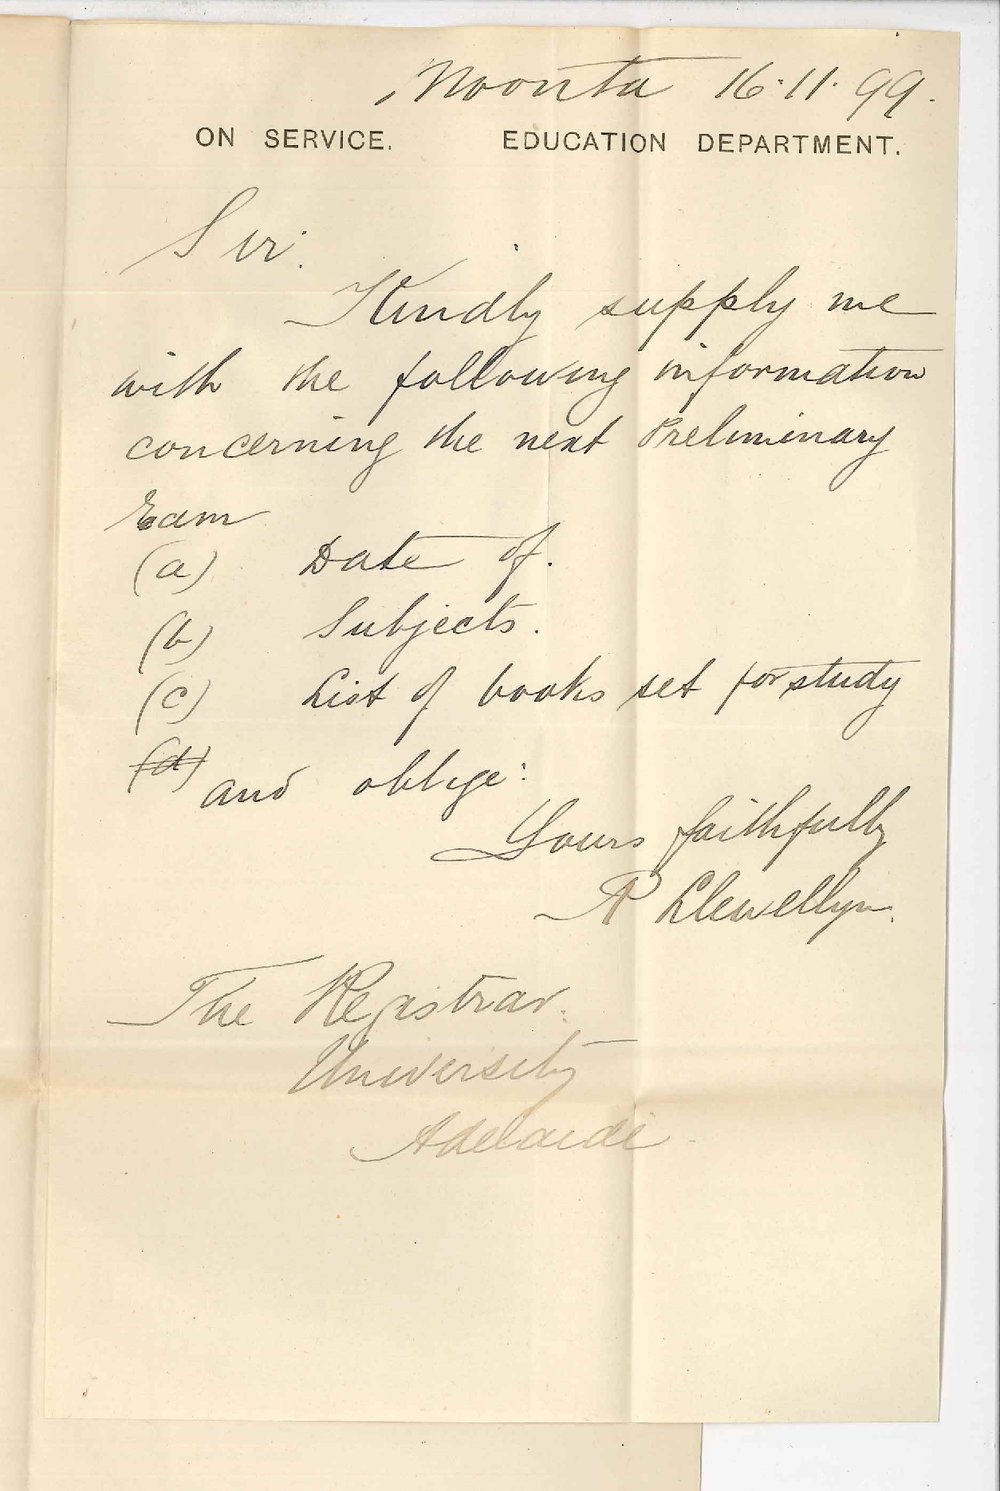 Moonta 16.11.99.
ON SERVICE. EDUCATION DEPARTMENT.
Sir.
Kindly supply me
with the following information
concerning the next Preliminary
Exam
(a) Date of.
(b) Subjects.
(c) List of books set for study
(d) and oblige:
Yours faithfully
R Llewellyn.
The Registrar.
University
Adelaide.